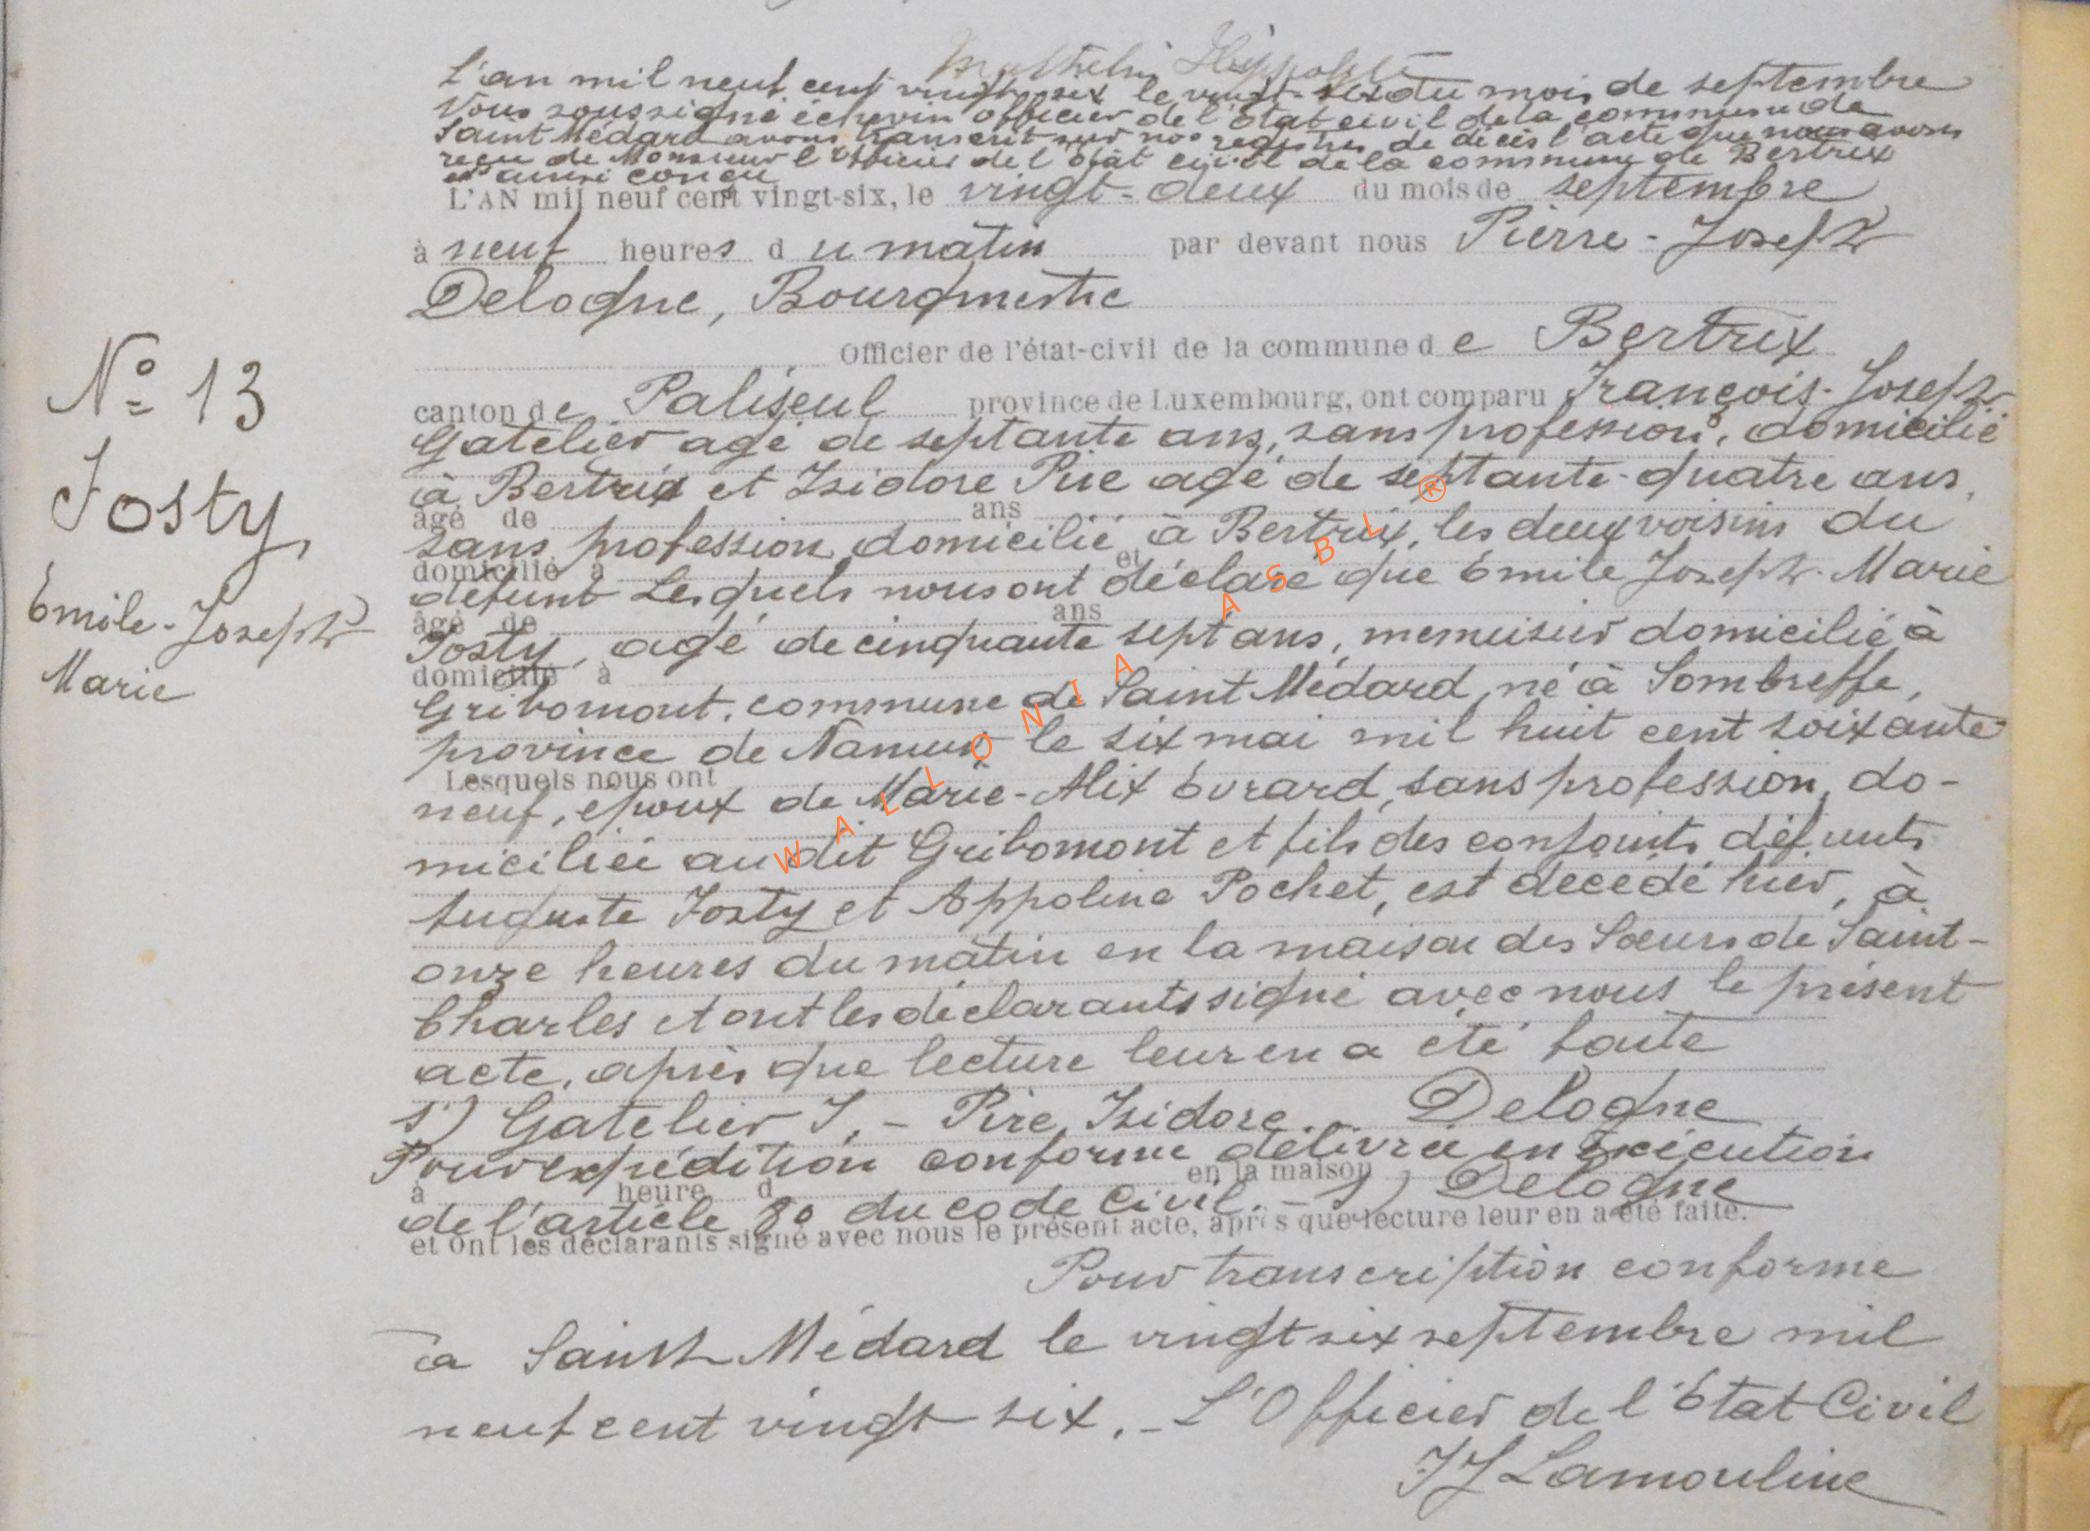 Mathelin Hippolyte
L'an mil neuf cent vingt-six le vingt-six du mois de septembre
Nous soussigné échevin officier de l'Etat civil de la commune de
Saint Médard avons transcrit sur nos registres de décès l'acte que nous avons
reçu de Monsieur l'Officier de l'Etat civil de la commune de Bertrix
et ainsi conçu
L'AN mil neuf cent vingt-six, le vingt-deux du mois de septembre
à neuf heures du matin par devant nous Pierre-Joseph
Delogne, Bourgmestre
Officier de l'état-civil de la commune de Bertrix
canton de Paliseul province de Luxembourg, ont comparu François-Joseph
Gatelier agé de septante ans, sans profession, domicilié
à Bertrix et Isidore Pire agé de septante-quatre ans,
âgé de ans
sans profession domicilié à Bertrix, les deux voisins du
domicilié à et
défunt Lesquels nous ont déclaré que Emile Joseph-Marie
âgé de ans
Josty, agé de cinquante sept ans, menuisier domicilié à
domicilié à
Gribomont, commune de Saint Médard, né à Sombreffe,
province de Namur le six mai mil huit cent soixante
Lesquels nous ont
neuf, époux de Marie-Alix Evrard, sans profession, do-
miciliée audit Gribomont et fils des conjoints défunts
Auguste Josty et Appoline Pochet, est décédé hier, à
onze heures du matin en la maison des Sœurs de Saint-
Charles et ont les déclarants signé avec nous le présent
acte, après que lecture leur en a été faite
s) Gatelier J. - Pire, Isidore. Delogne
Pour expédition conforme délivrée en Exécution
à heure d en la maison
de l'article 80 du code Civil. - s) Delogne
et ont les déclarants signé avec nous le présent acte, après que lecture leur en a été faite.
Pour transcription conforme
à Saint Médard le vingt six septembre mil
neuf cent vingt six. - L'Officier de l'Etat Civil
JJ Lamouline
No 13
Josty
Emile-Joseph
Marie
WALLONIA ASBL ®